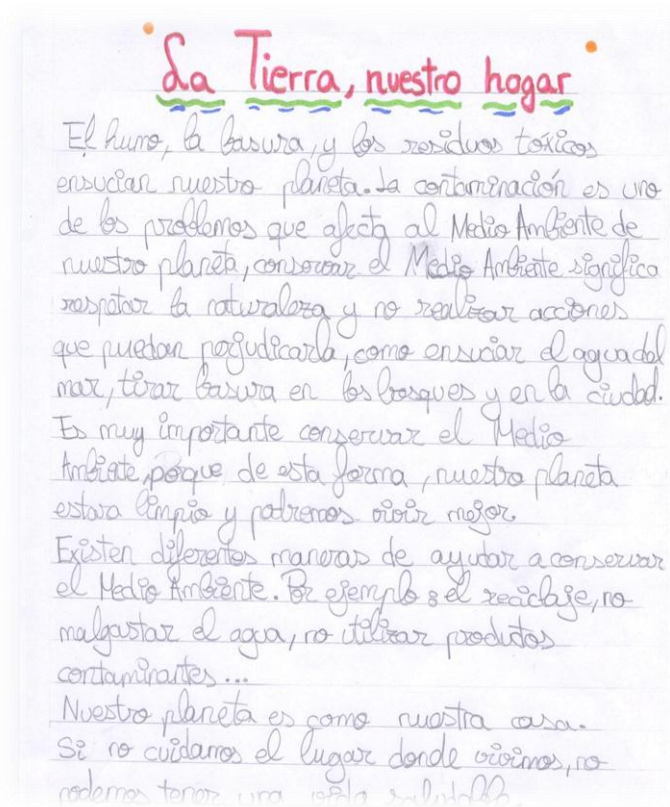 La Tierra, nuestro hogar
El humo, la basura, y los residuos tóxicos
ensucian nuestro planeta. La contaminación es uno
de los problemas que afecta al Medio Ambiente de
nuestro planeta, conservar el Medio Ambiente significa
respetar la naturaleza y no realizar acciones
que puedan perjudicarla, como ensuciar el agua del
mar, tirar basura en los bosques y en la ciudad.
Es muy importante conservar el Medio
Ambiente, porque de esta forma, nuestro planeta
estara limpio y podremos vivir mejor.
Existen diferentes maneras de ayudar a conservar
el Medio Ambiente. Por ejemplo: el reciclaje, no
malgastar el agua, no utilizar productos
contaminantes...
Nuestro planeta es como nuestra casa.
Si no cuidamos el lugar donde vivimos, no
podemos tener una vida saludable